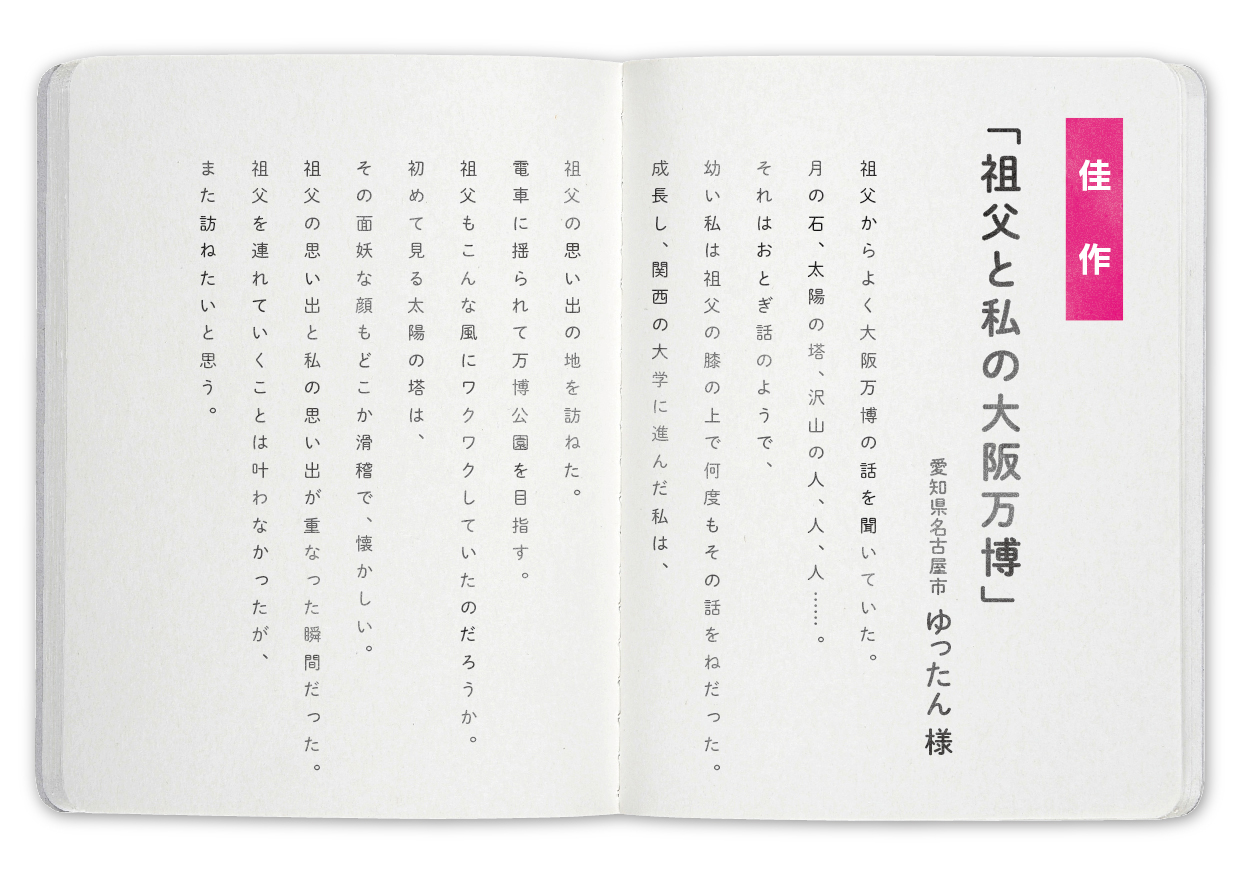 佳作
「祖父と私の大阪万博」
愛知県名古屋市 ゆったん 様
祖父からよく大阪万博の話を聞いていた。
月の石、太陽の塔、沢山の人、人、人……。
それはおとぎ話のようで、
幼い私は祖父の膝の上で何度もその話をねだった。
成長し、関西の大学に進んだ私は、
祖父の思い出の地を訪ねた。
電車に揺られて万博公園を目指す。
祖父もこんな風にワクワクしていたのだろうか。
初めて見る太陽の塔は、
その面妖な顔もどこか滑稽で、懐かしい。
祖父の思い出と私の思い出が重なった瞬間だった。
祖父を連れていくことは叶わなかったが、
また訪ねたいと思う。